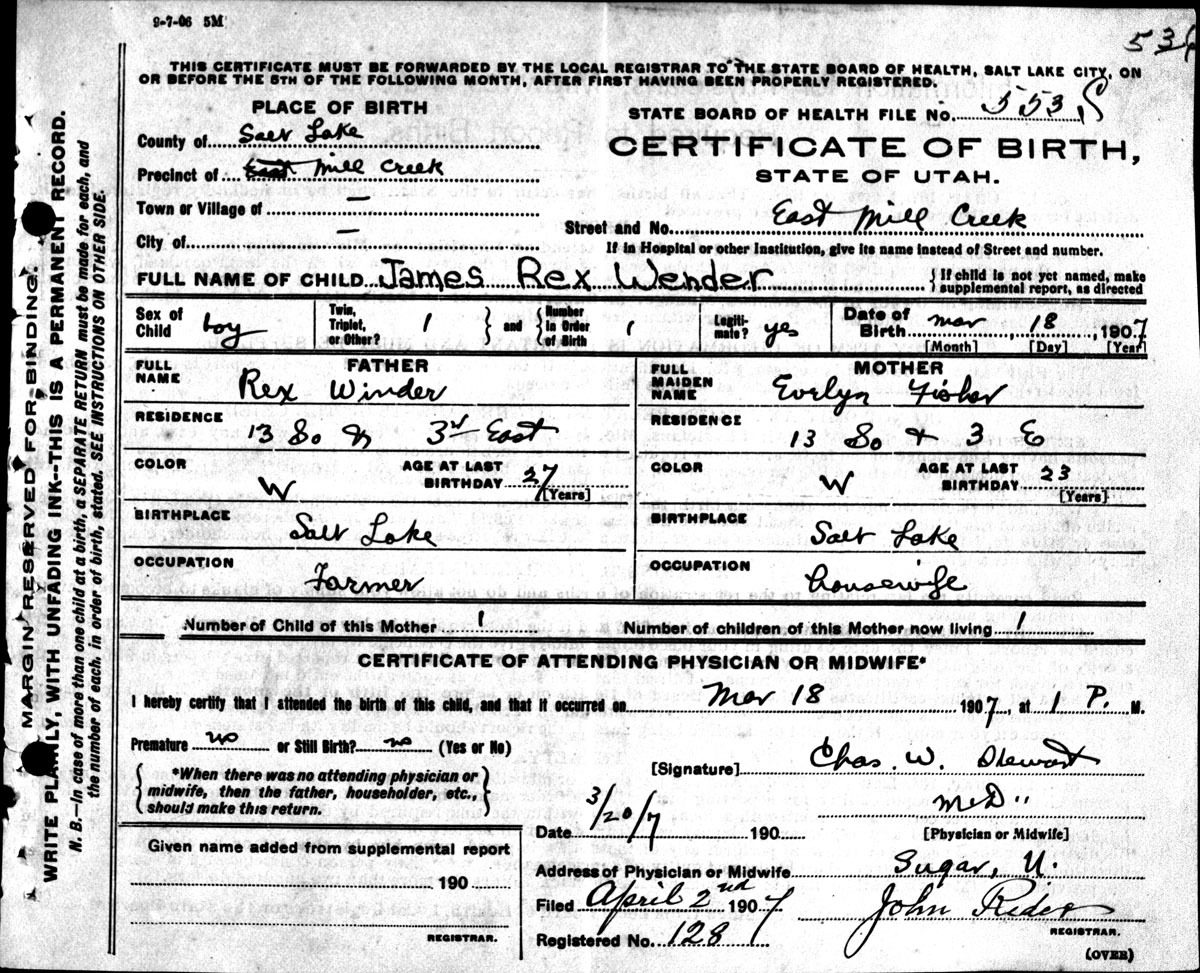 9-7-06 5M
53
THIS CERTIFICATE MUST BE FORWARDED BY THE LOCAL REGISTRAR TO THE STATE BOARD OF HEALTH, SALT LAKE CITY, ON
OR BEFORE THE 5TH OF THE FOLLOWING MONTH, AFTER FIRST HAVING BEEN PROPERLY REGISTERED.
MARGIN RESERVED FOR BINDING.
WRITE PLAINLY, WITH UNFADING INK—THIS IS A PERMANENT RECORD.
N. B.—In case of more than one child at a birth, a SEPARATE RETURN must be made for each, and
the number of each, in order of birth, stated. SEE INSTRUCTIONS ON OTHER SIDE.
PLACE OF BIRTH
County of Salt Lake
Precinct of East Mill Creek
Town or Village of —
City of —
STATE BOARD OF HEALTH FILE No. 553
CERTIFICATE OF BIRTH,
STATE OF UTAH.
Street and No. East Mill Creek
If in Hospital or other Institution, give its name instead of Street and number.
FULL NAME OF CHILD James Rex Wender { If child is not yet named, make
supplemental report, as directed
Sex of Child boy Twin, Triplet, or Other? 1 } and { Number in Order of Birth 1 Legitimate? yes Date of Birth Mar 18, 1907
[Month] [Day] [Year]
FATHER
FULL NAME Rex Winder
RESIDENCE
13 So & 3rd East
COLOR W AGE AT LAST BIRTHDAY 27
[Years]
BIRTHPLACE
Salt Lake
OCCUPATION
Farmer
MOTHER
FULL MAIDEN NAME Evelyn Fisher
RESIDENCE
13 So + 3 E
COLOR W AGE AT LAST BIRTHDAY 23
[Years]
BIRTHPLACE
Salt Lake
OCCUPATION
housewife
Number of Child of this Mother 1 Number of children of this Mother now living 1
CERTIFICATE OF ATTENDING PHYSICIAN OR MIDWIFE*
I hereby certify that I attended the birth of this child, and that it occurred on Mar 18 1907, at 1 P. M.
Premature no or Still Birth? no (Yes or No)
{ *When there was no attending physician or
midwife, then the father, householder, etc.,
should make this return. }
[Signature] Chas. W. Stewart
M.D.
Date 3/20/7 190 [Physician or Midwife]
Given name added from supplemental report
190
REGISTRAR.
Address of Physician or Midwife Sugar, U.
Filed April 2nd 1907 John Rider
REGISTRAR.
Registered No. 128
(OVER)